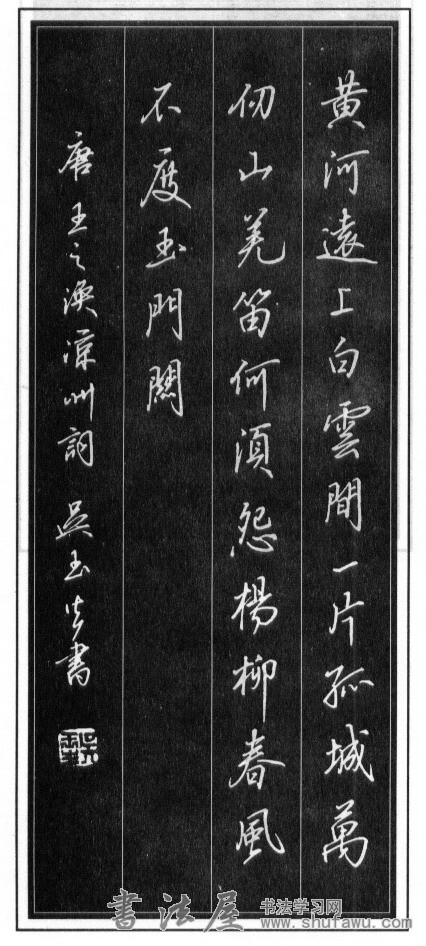 黄河遠上白雲間一片孤城萬
仞山羌笛何須怨楊柳春風
不度玉門關
唐王之渙涼州詞 吳玉生書
書法屋 书法学习网
www.shufawu.com